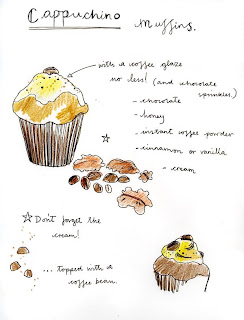 Cappuchino Muffins.
with a coffee glaze
no less! (and chocolate
sprinkles.)
- chocolate
- honey
- instant coffee powder
- cinnamon or vanilla
- cream
Don't forget the
cream!
... topped with a
coffee bean.